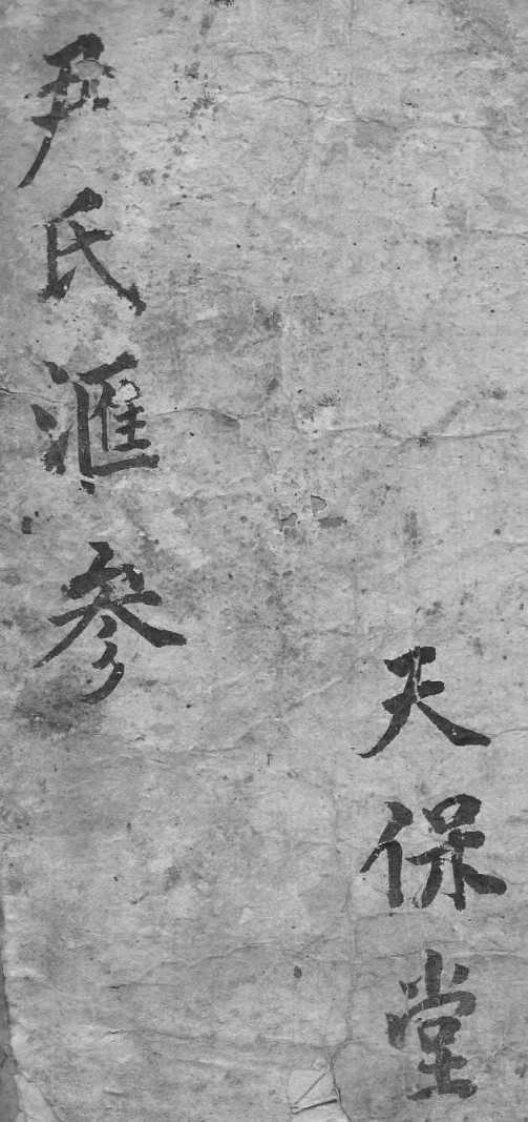 天保堂
尹氏滙參